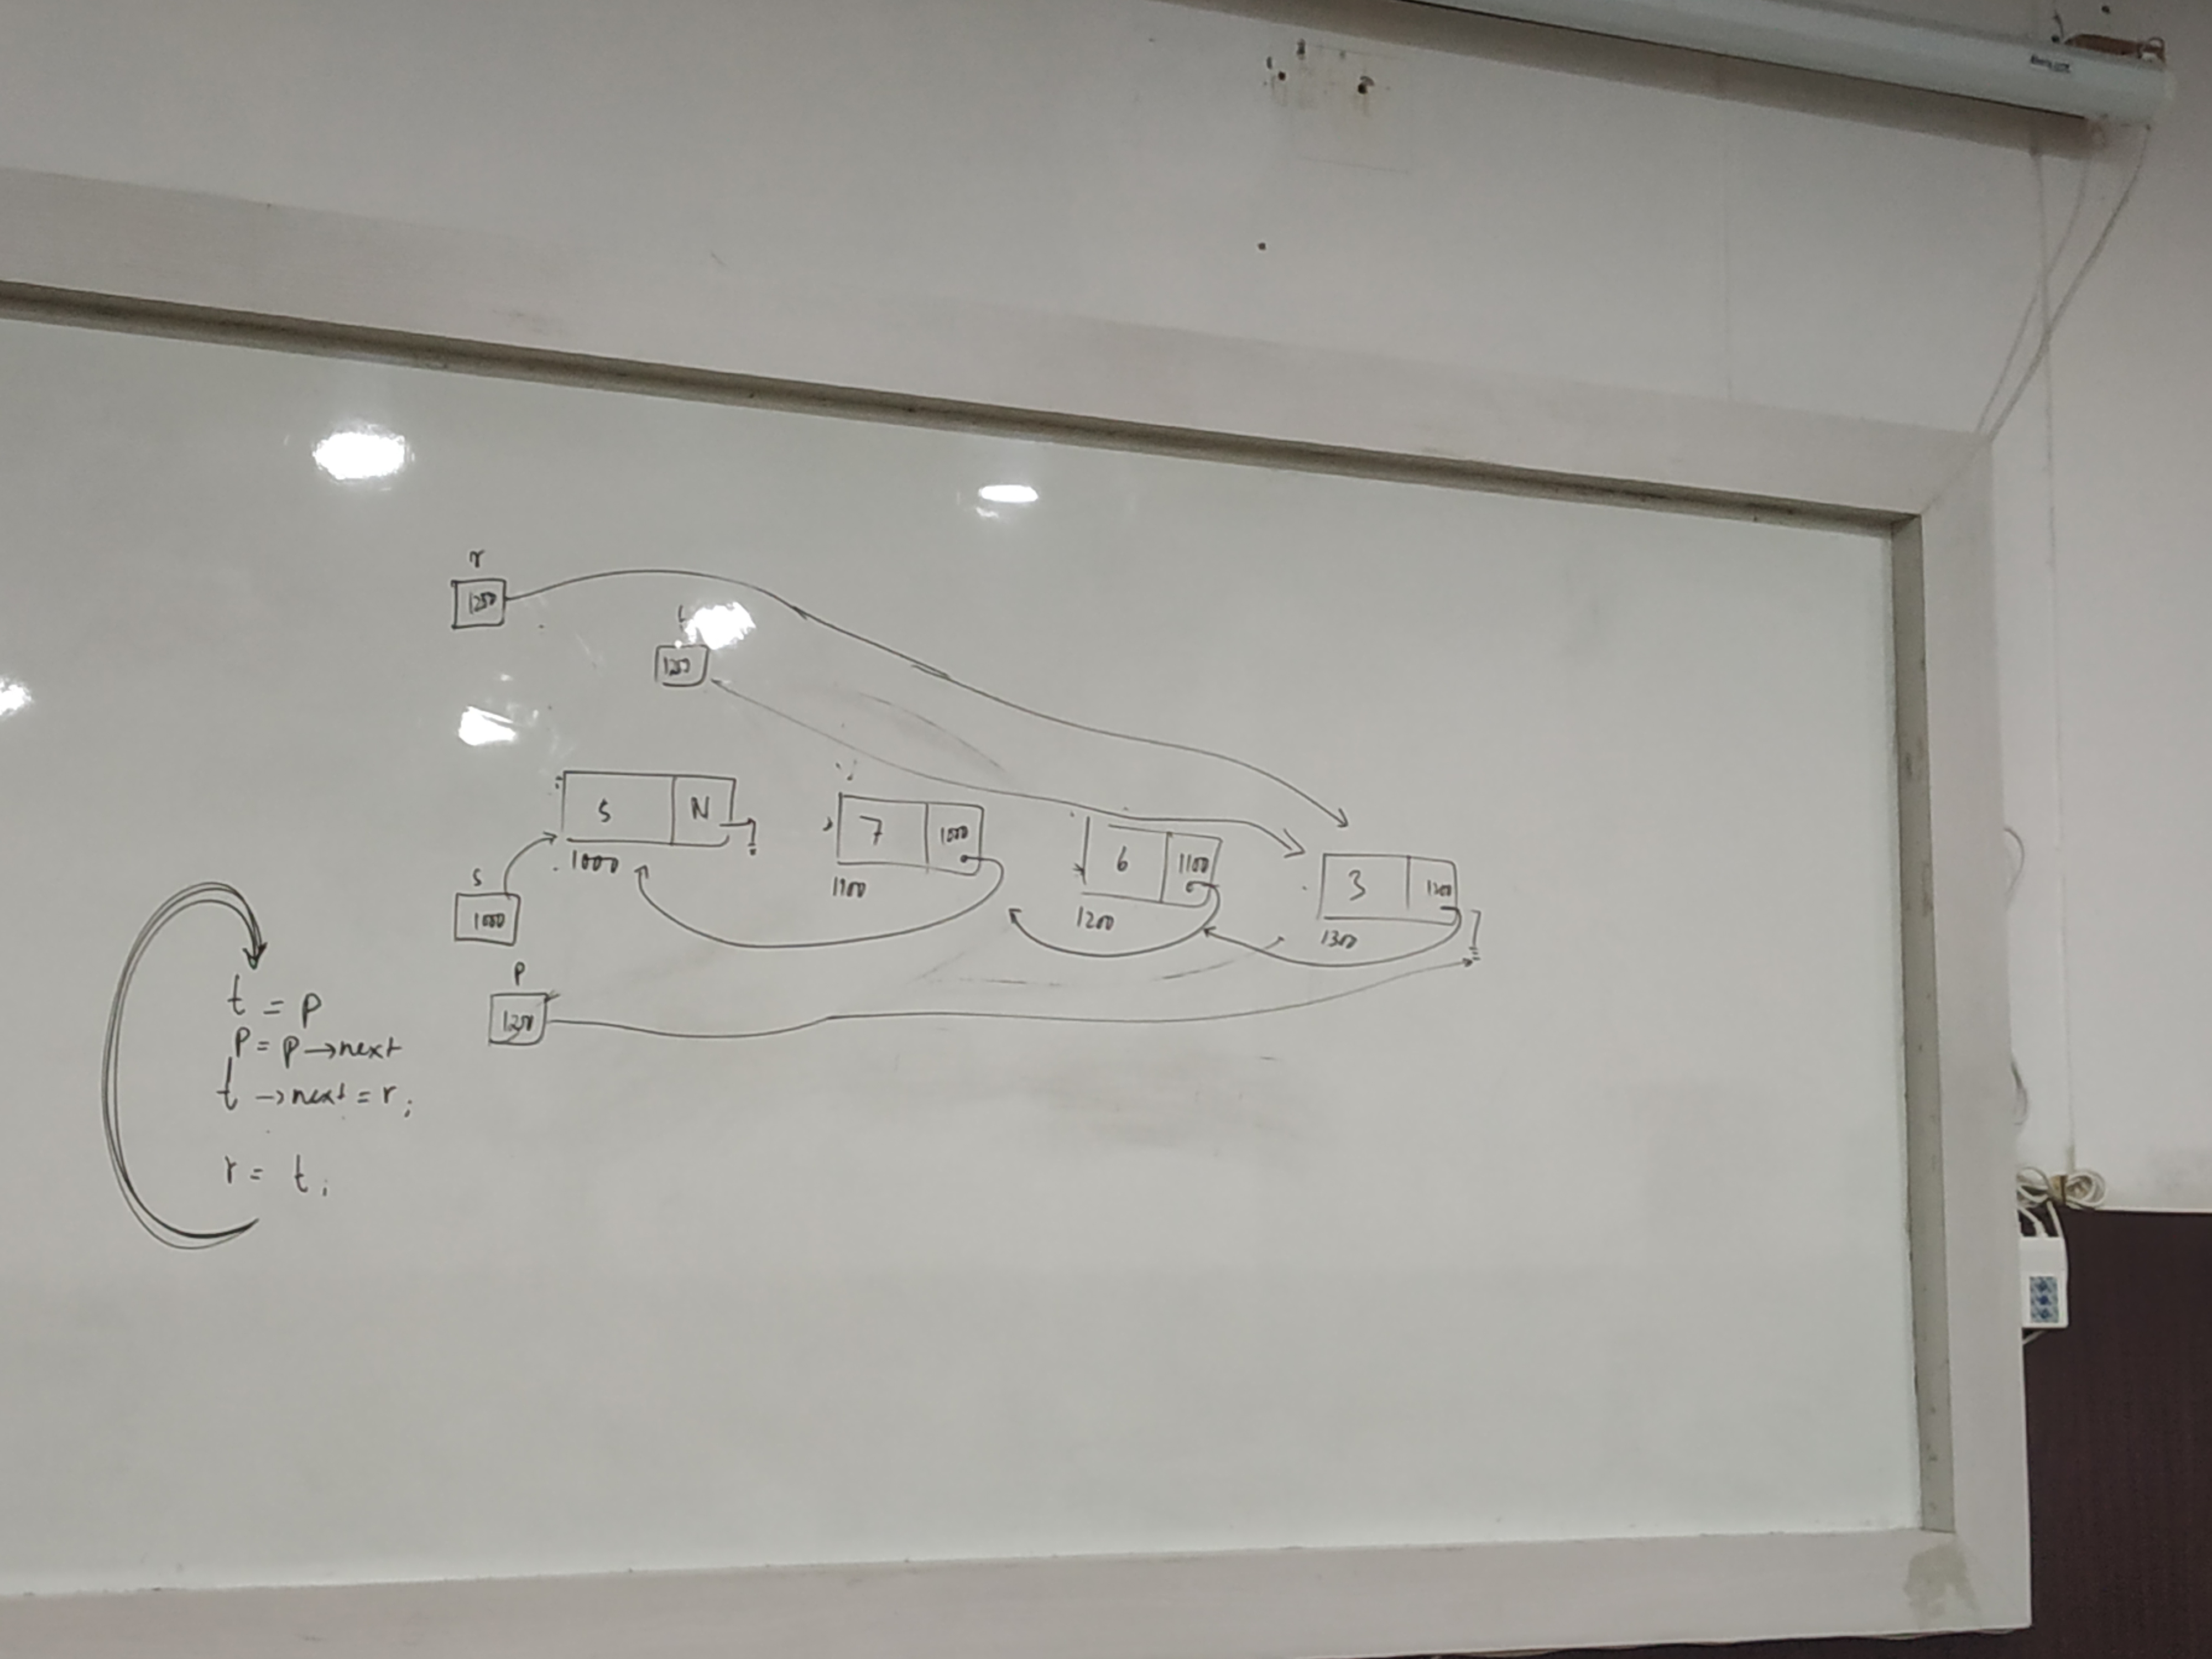 r
1200
1200
5 N
7 1000
6 1100
3 1200
1000
1100
1200
1300
s
1000
p
1200
t = p
p = p → next
t → next = r;
r = t;